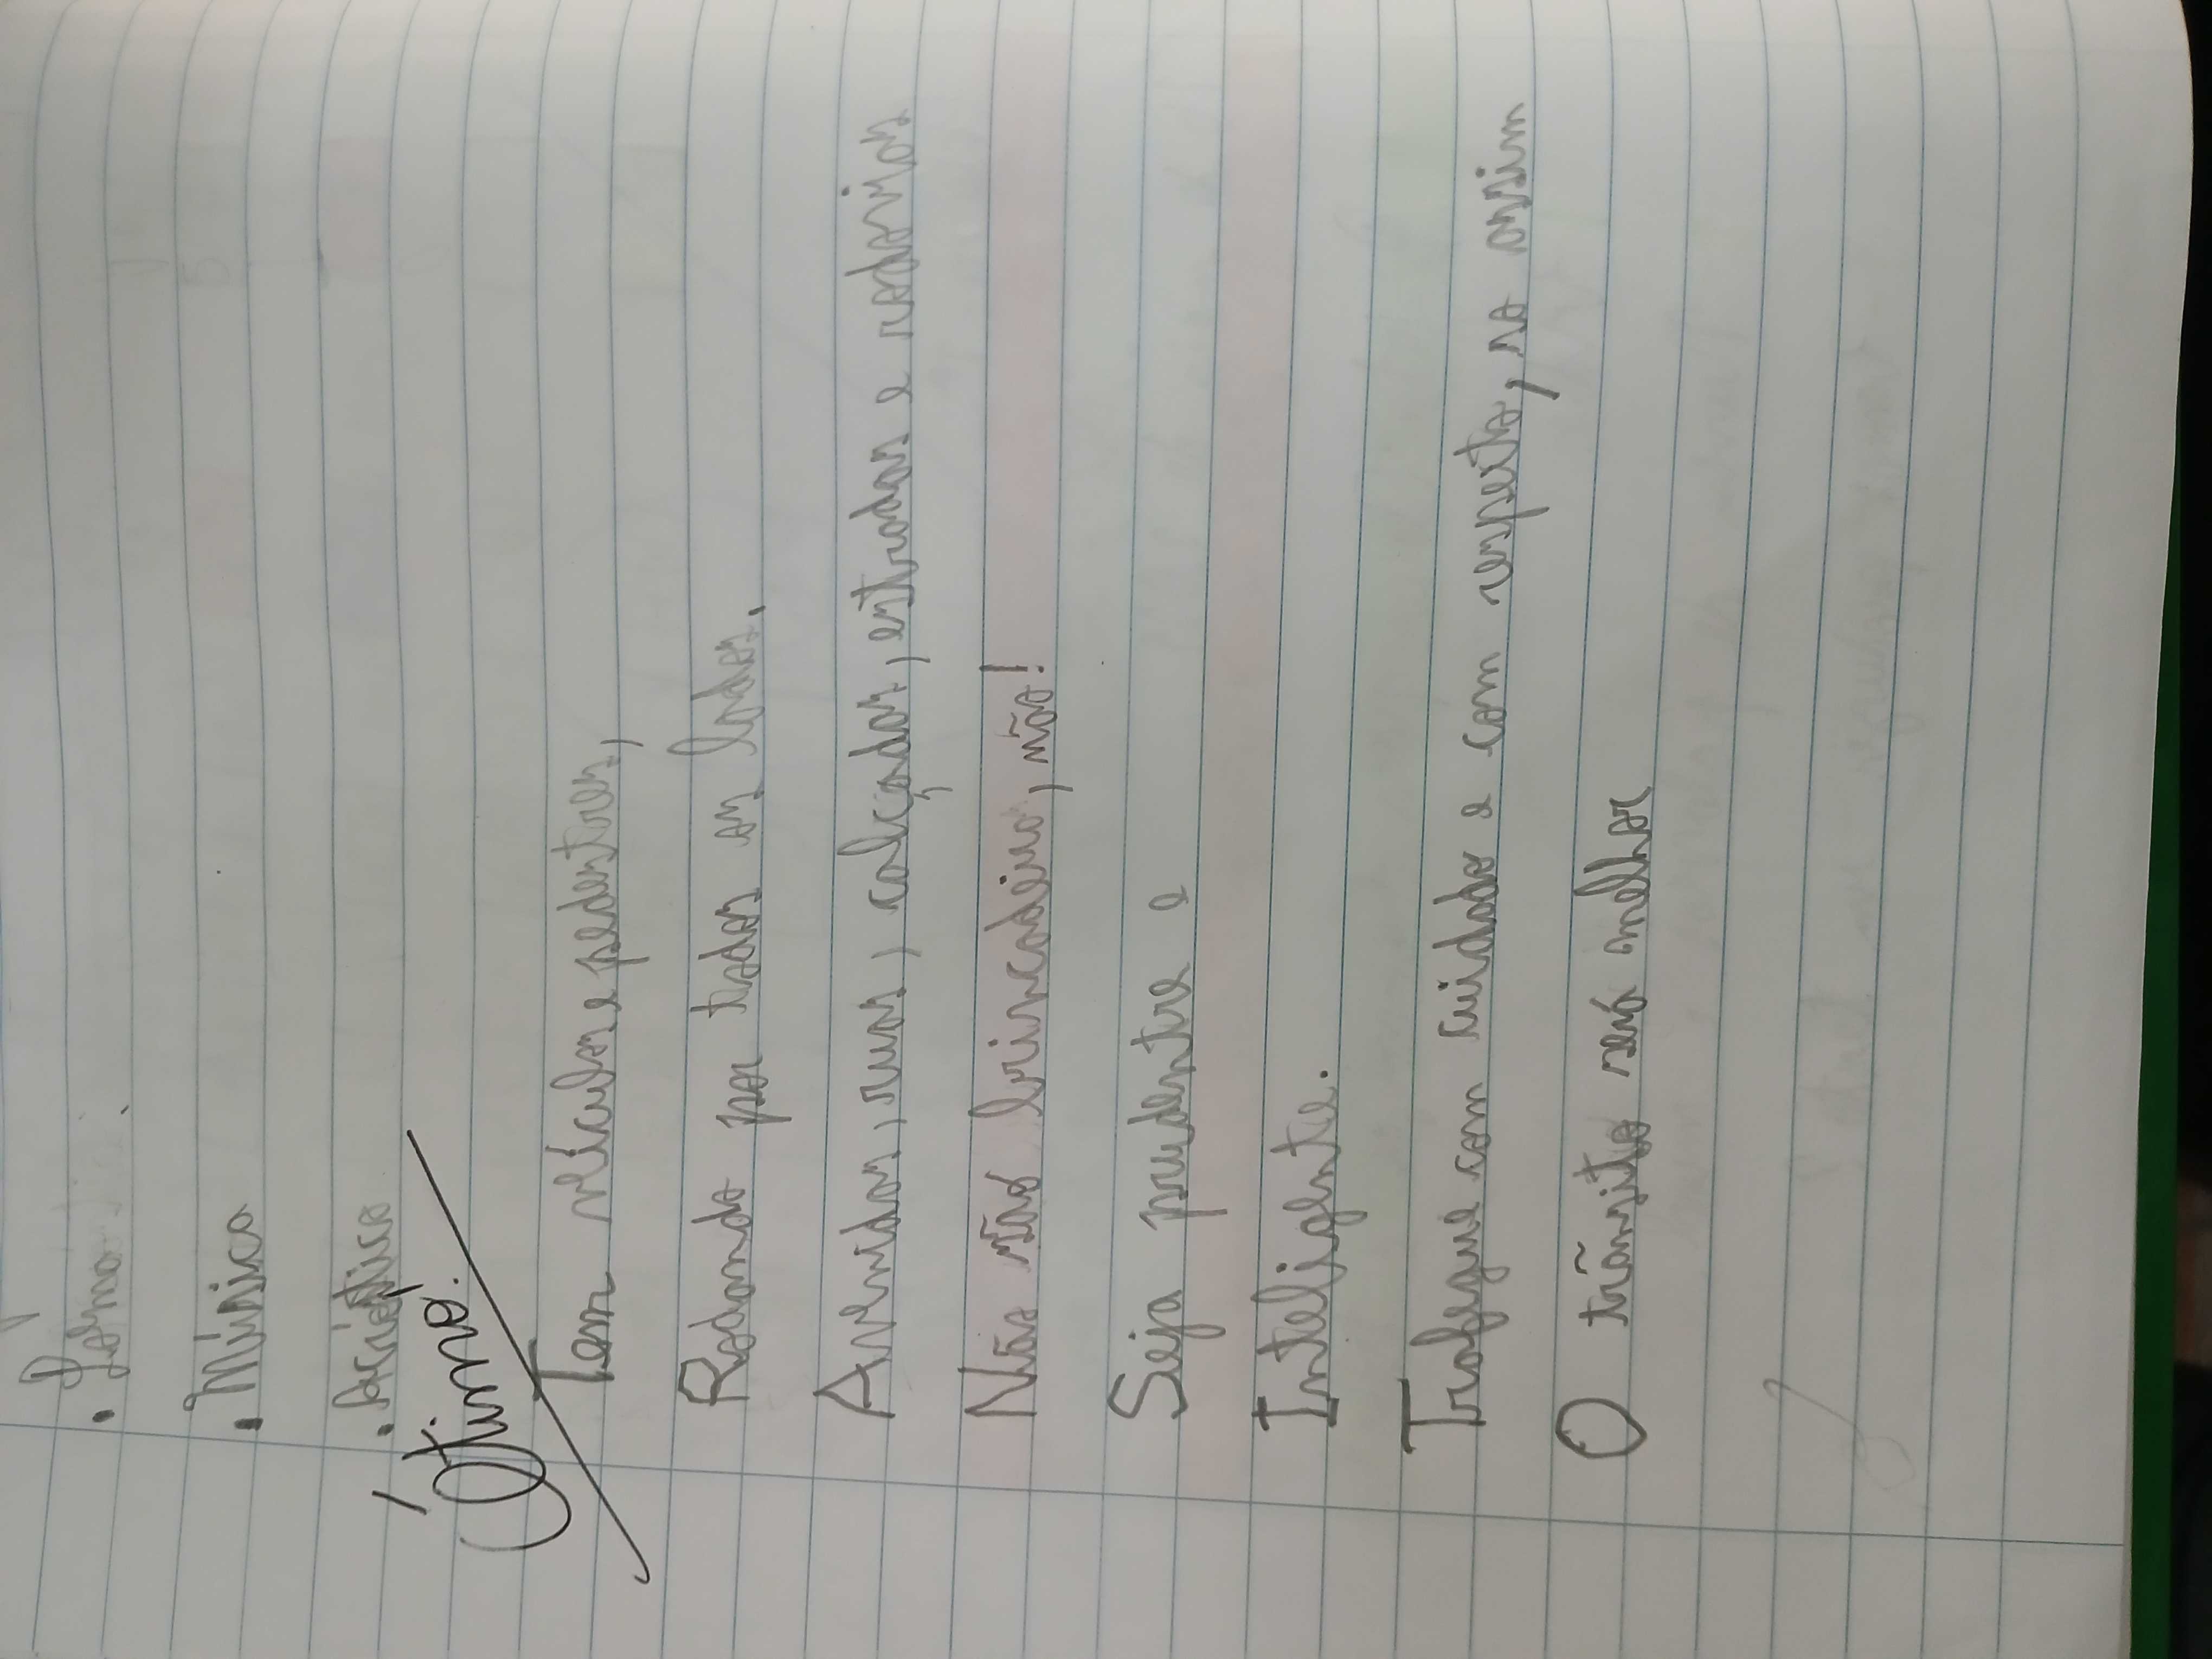 . Música
. Acróstico
Ótimo!
Tem veículos e pedestres,
Rodando por todos os lados.
Avenidas, ruas, calçadas, estradas e rodovias
Não são brincadeira, não!
Seja prudente e
Inteligente.
Trafegue com cuidado e com respeito, so assim
O trânsito será melhor